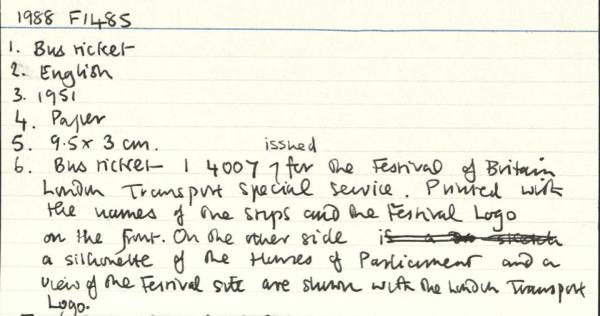 1988 F1485
1. Bus ticket
2. English
3. 1951
4. Paper
5. 9.5 x 3 cm.
issued
6. Bus ticket 1 4007 7 for the Festival of Britain
London Transport special service. Printed with
the names of the stops and the Festival Logo
on the front. On the other side is a sketch
a silhouette of the Houses of Parliament and a
view of the Festival site are shown with the London Transport
Logo.